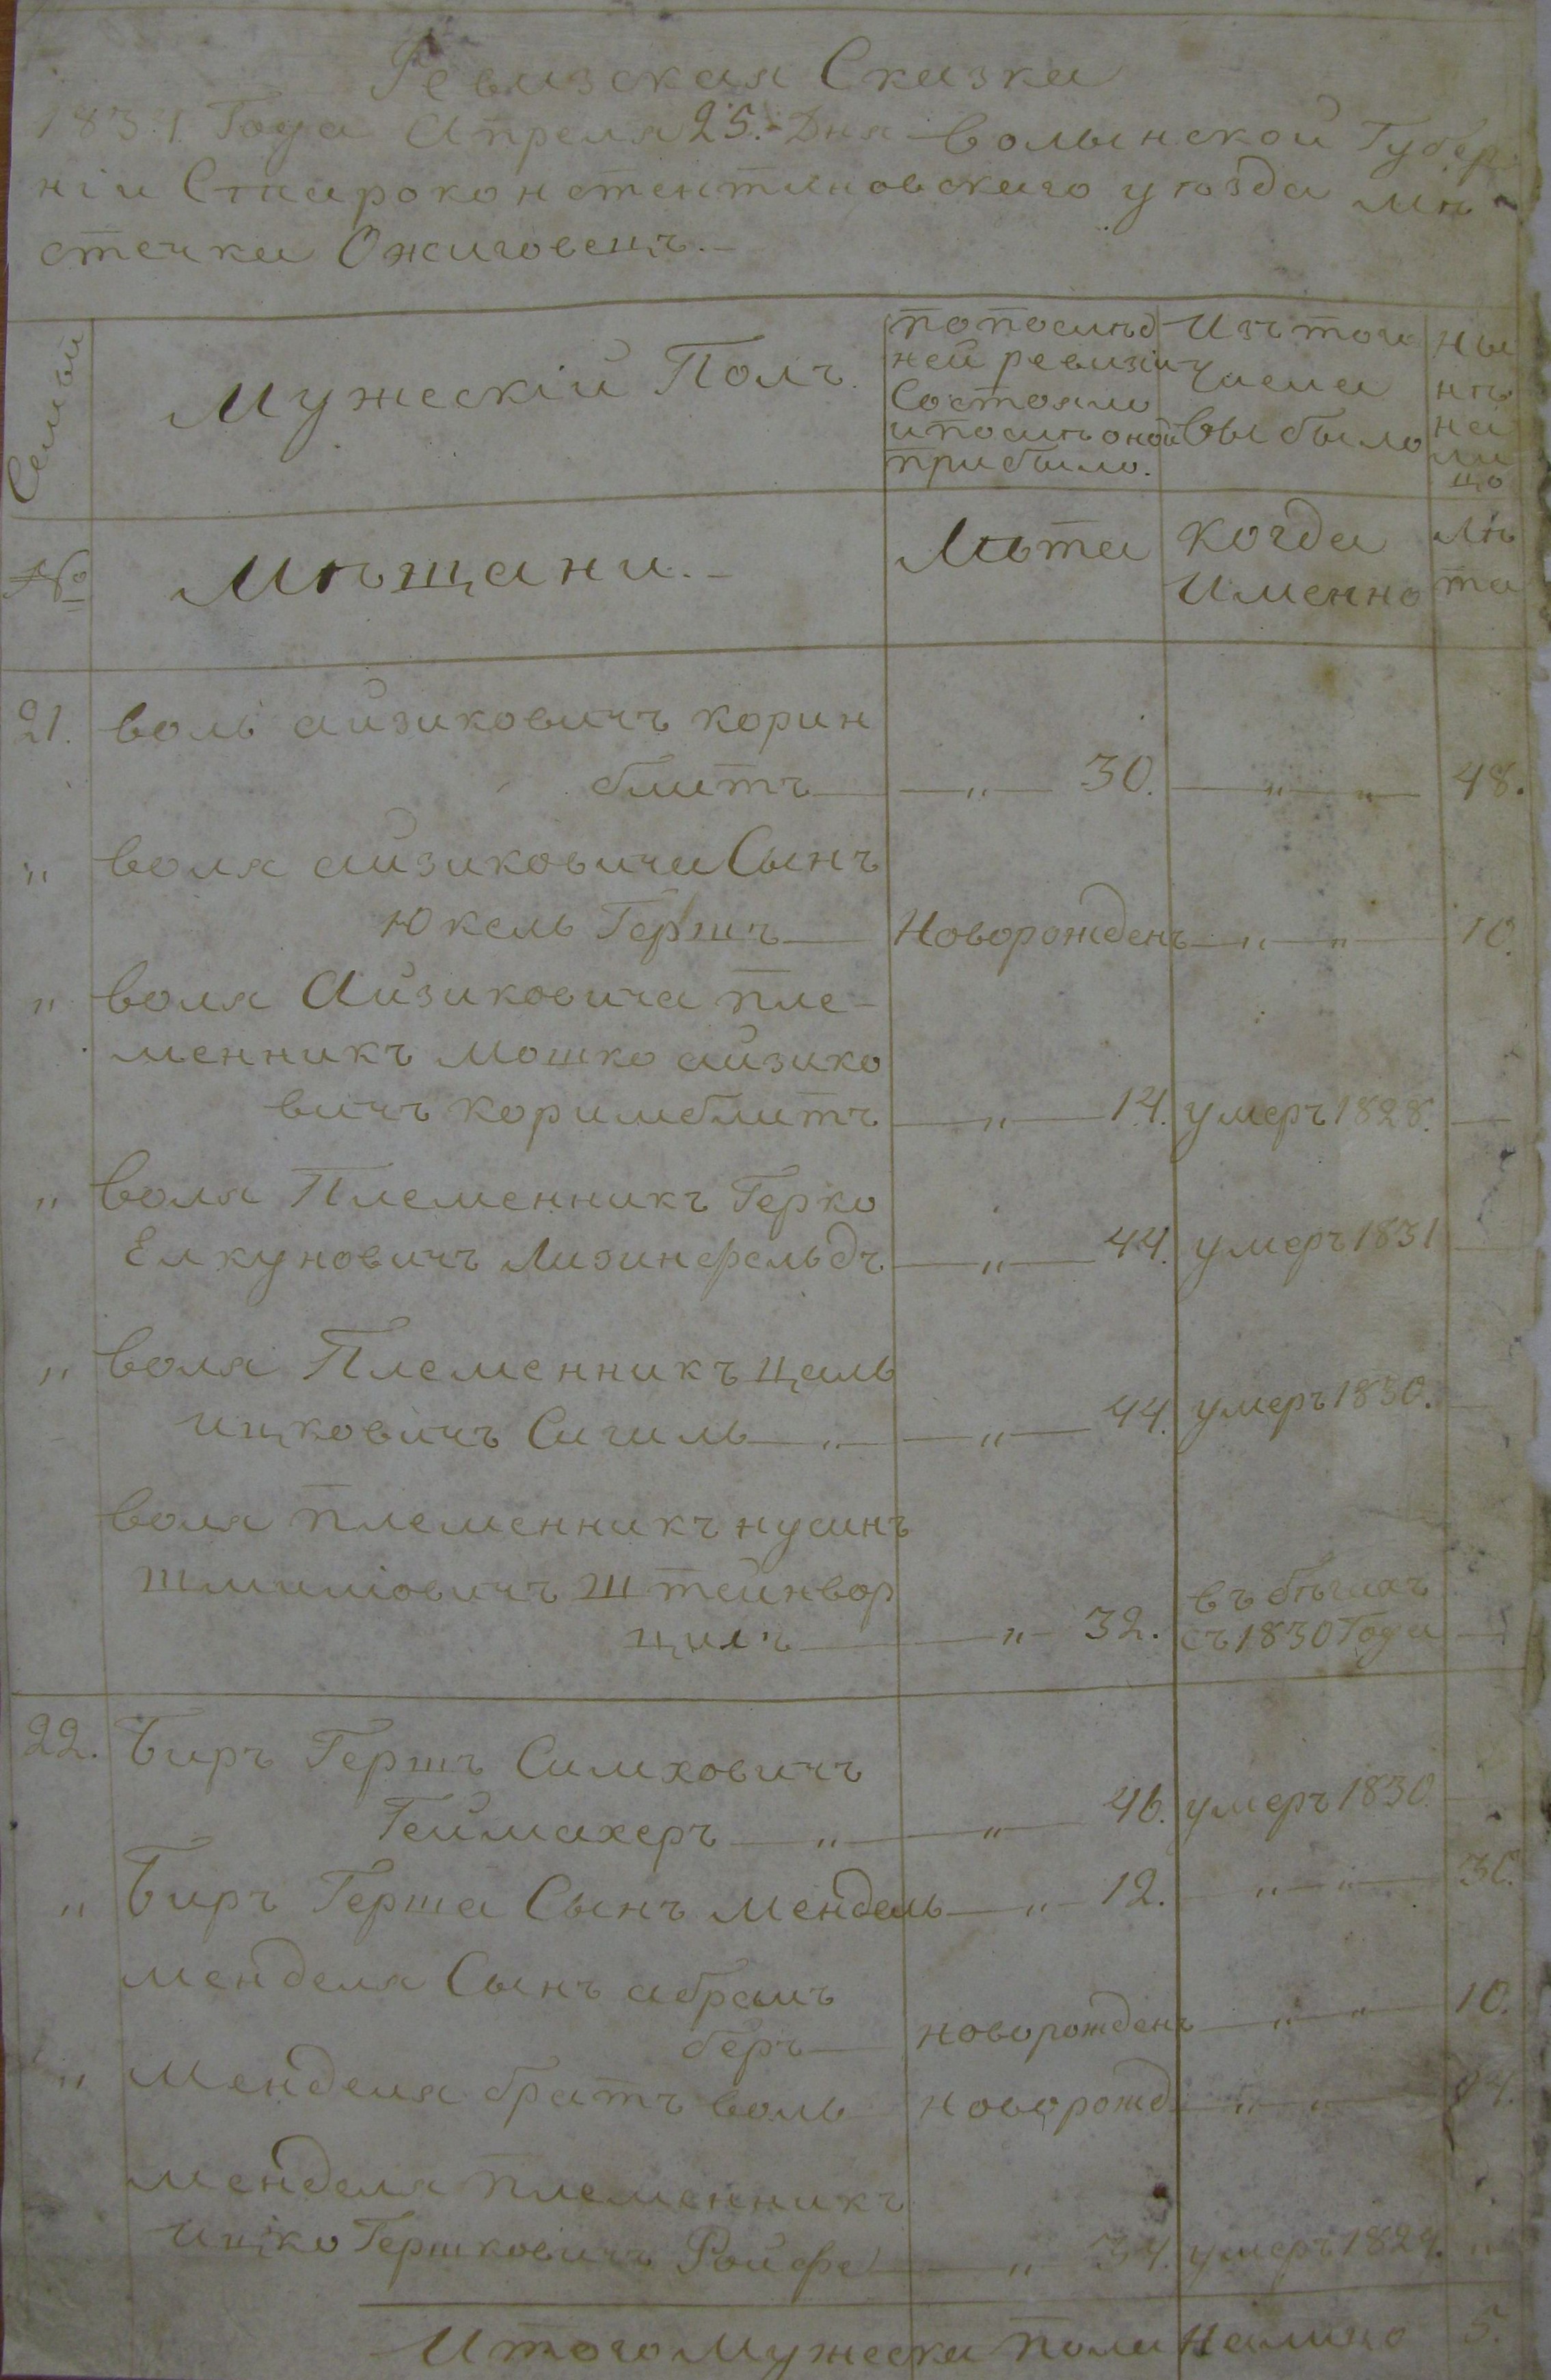 Ревизская Сказка
1834 Года Апреля 25.- Дня Волынской Губер
ніи Староконстентиновскаго уѣзда мѣ-
стечка Ожиговецъ.-
Семьи
Мужескій Полъ.
по послѣд
ней ревизіи
Состояло
и послѣ оной
прибыло.
Изъ того
числа
выбыло
Ны
нѣ
на
ли
цо
№
Мѣщани.-
Лѣта
Когда
Именно
Лѣ
та
21. воль айзиковичъ корин
блитъ — „ — 30. — „ — „ — 48.
„ воля айзиковича Сынъ
Юкель Гершъ — Новорожденъ — „ — „ — 10.
„ воля Айзиковича пле-
менникъ мошко айзико
вичъ коримблитъ — „ — 14. умеръ 1828. —
„ воля Племенникъ Герко
Елкуновичъ Лизинфельдъ — „ — 44. умеръ 1831 —
„ воля Племенникъ цаль
ицковичъ Сигиль — „ — „ — 44. умеръ 1830. —
воля племенникъ нусинъ
шмиліовичъ штейнвор
цилъ — „ — 32. въ бѣгахъ
съ 1830 Года —
22. Биръ Гершъ Симховичъ
Геймахеръ — „ — „ — 46. умеръ 1830. —
„ Биръ Герша Сынъ мендель — „ — 12. — „ — „ — 30.
менделя Сынъ абрамъ
беръ — новорожденъ — „ — „ — 10.
„ менделя братъ воль новорожд. — „ — „ —
менделя племенникъ
ицко Гершковичъ Ройфе — „ — 34. умеръ 1824. „
Итого Мужеска пола Налицо 5.